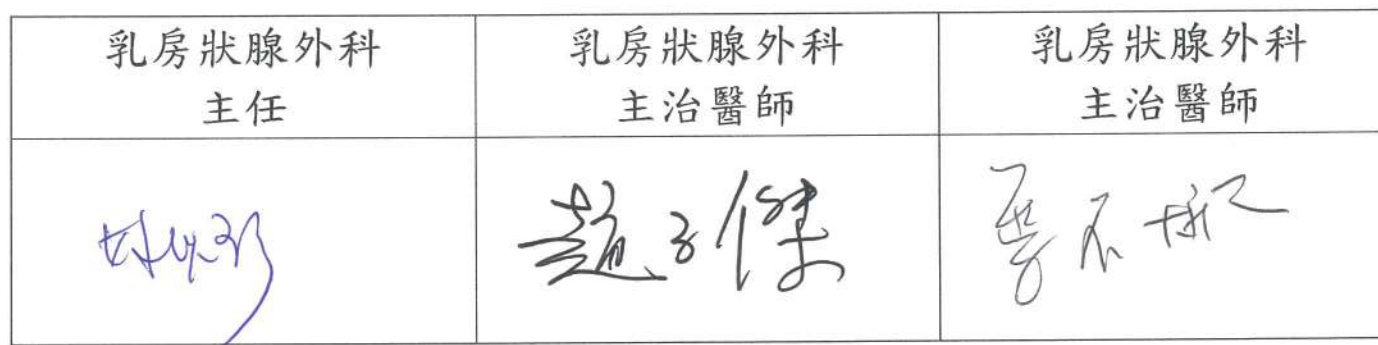 乳房狀腺外科
主任
乳房狀腺外科
主治醫師
乳房狀腺外科
主治醫師
趙子傑